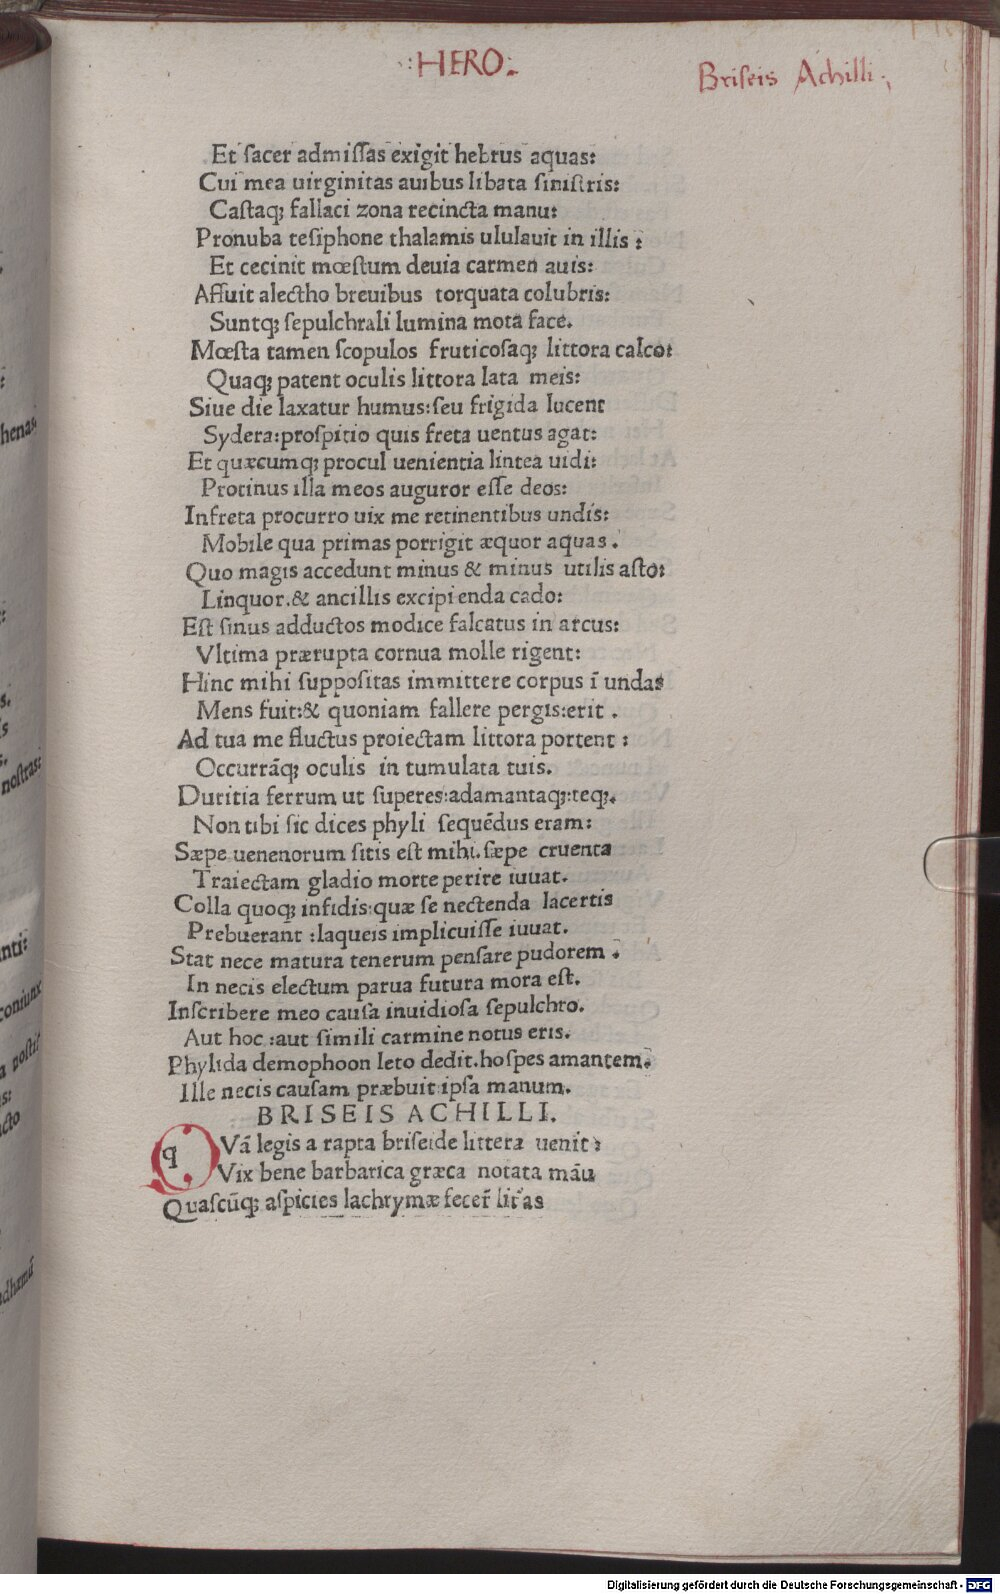 :HERO:
Briseis Achilli:
Et sacer admissas exigit hebrus aquas:
Cui mea uirginitas auibus libata sinistris:
Castaqꝫ fallaci zona recincta manu:
Pronuba tesiphone thalamis ululauit in illis:
Et cecinit mœstum deuia carmen auis:
Affuit alectho breuibus torquata colubris:
Suntqꝫ sepulchrali lumina mota face.
Mœsta tamen scopulos fruticosaqꝫ littora calco:
Quaqꝫ patent oculis littora lata meis:
Siue die laxatur humus:seu frigida lucent
Sydera:prospitio quis freta uentus agat:
Et quæcumqꝫ procul uenientia lintea uidi:
Protinus illa meos auguror esse deos:
Infreta procurro uix me retinentibus undis:
Mobile qua primas porrigit æquor aquas.
Quo magis accedunt minus & minus utilis asto:
Linquor.& ancillis excipienda cado:
Est sinus adductos modice falcatus in arcus:
Vltima prærupta cornua molle rigent:
Hinc mihi suppositas immittere corpus ī undas
Mens fuit:& quoniam fallere pergis:erit.
Ad tua me fluctus proiectam littora portent:
Occurrāqꝫ oculis in tumulata tuis.
Duritia ferrum ut superes:adamantaqꝫ:teqꝫ.
Non tibi sic dices phyli sequēdus eram:
Sæpe uenenorum sitis est mihi.sæpe cruenta
Traiectam gladio morte perire iuuat.
Colla quoqꝫ infidis:quæ se nectenda lacertis
Prebuerant:laqueis implicuisse iuuat.
Stat nece matura tenerum pensare pudorem:
In necis electum parua futura mora est.
Inscribere meo causa inuidiosa sepulchro.
Aut hoc:aut simili carmine notus eris.
Phylida demophoon leto dedit.hospes amantem.
Ille necis causam præbuit:ipsa manum.
BRISEIS ACHILLI.
qVā legis a rapta briseide littera uenit:
Vix bene barbarica græca notata māu
Quascūqꝫ aspicies lachrymæ fecer̄ lit̄as
henas
nostras:
coniunx
Digitalisierung gefördert durch die Deutsche Forschungsgemeinschaft - DFG